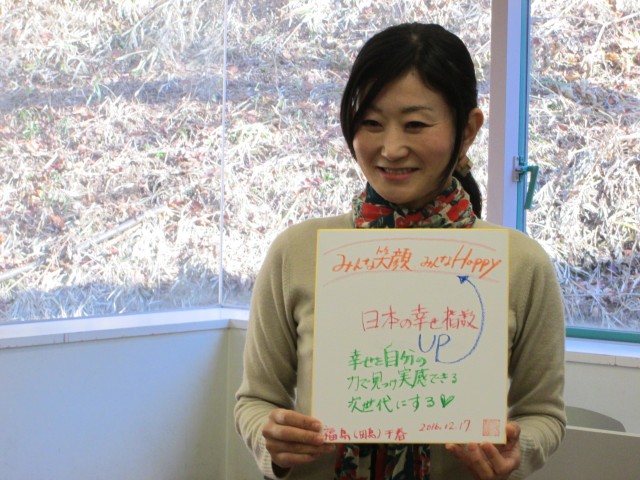 みんな笑顔 みんなHappy
日本の幸せ指数
UP
幸せを自分の
力で見つけ実感できる
次世代にする♡
福島(田島)千春 2016.12.17